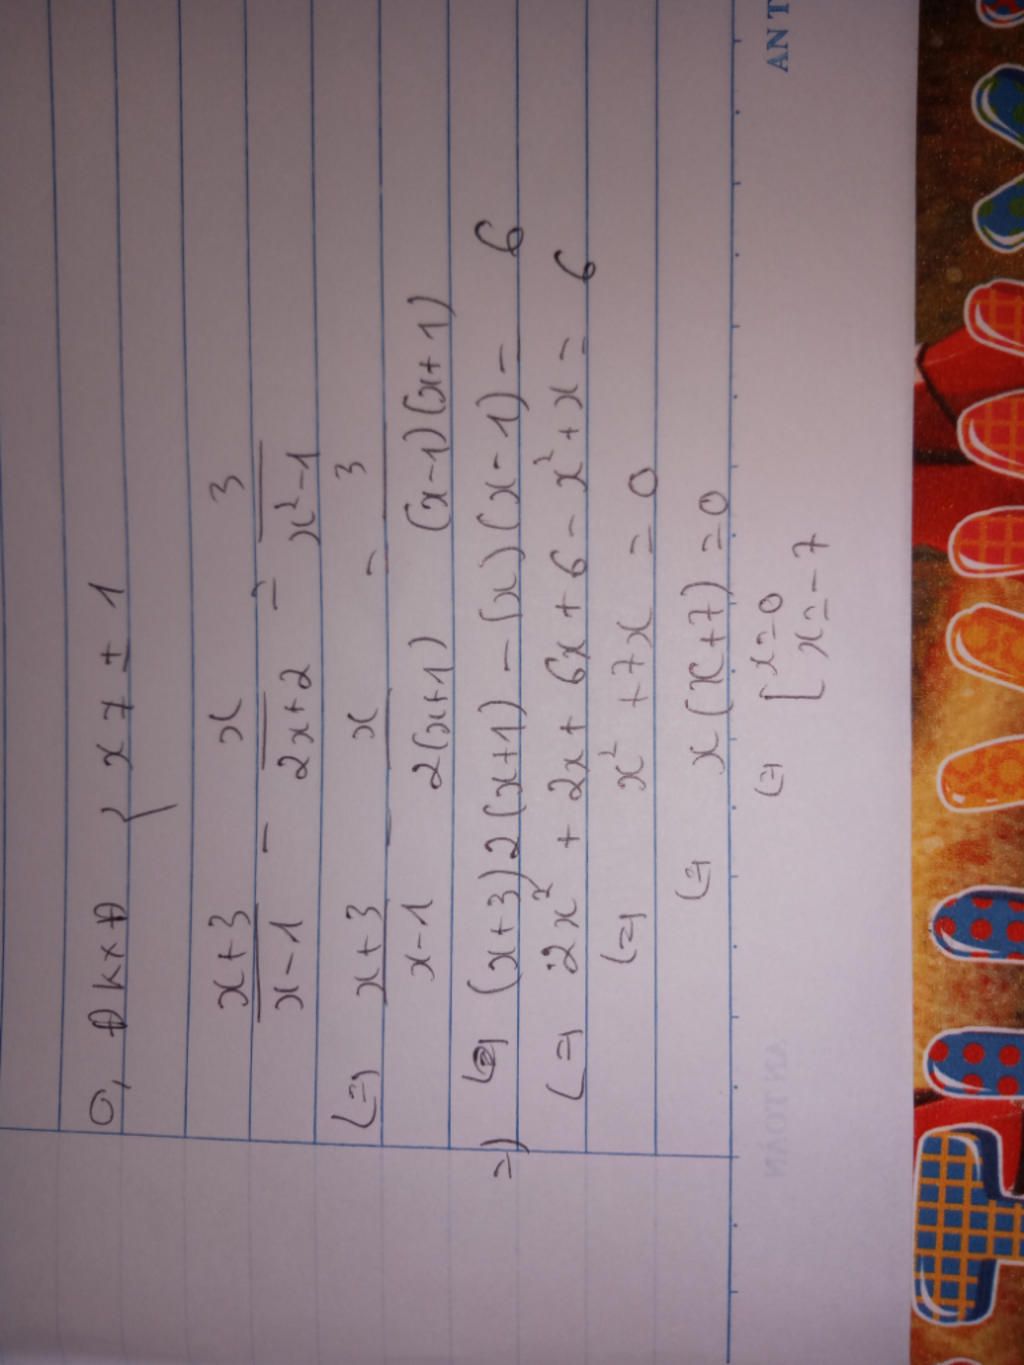 o, ĐKXĐ { x ≠ ± 1
x+3/x-1 - x/2x+2 = 3/x²-1
(=) x+3/x-1 - x/2(x+1) = 3/(x-1)(x+1)
=) (x+3)2(x+1) - (x)(x-1) = 6
(=) 2x² + 2x + 6x + 6 - x² + x = 6
(=) x² + 7x = 0
(=) x(x+7) = 0
(=) [ x = 0
x = -7
AN T
AN TOAN